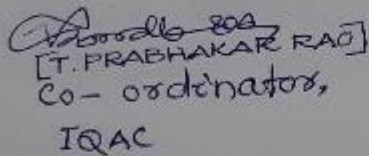 [T. PRABHAKAR RAO]
Co-ordinator,
IQAC